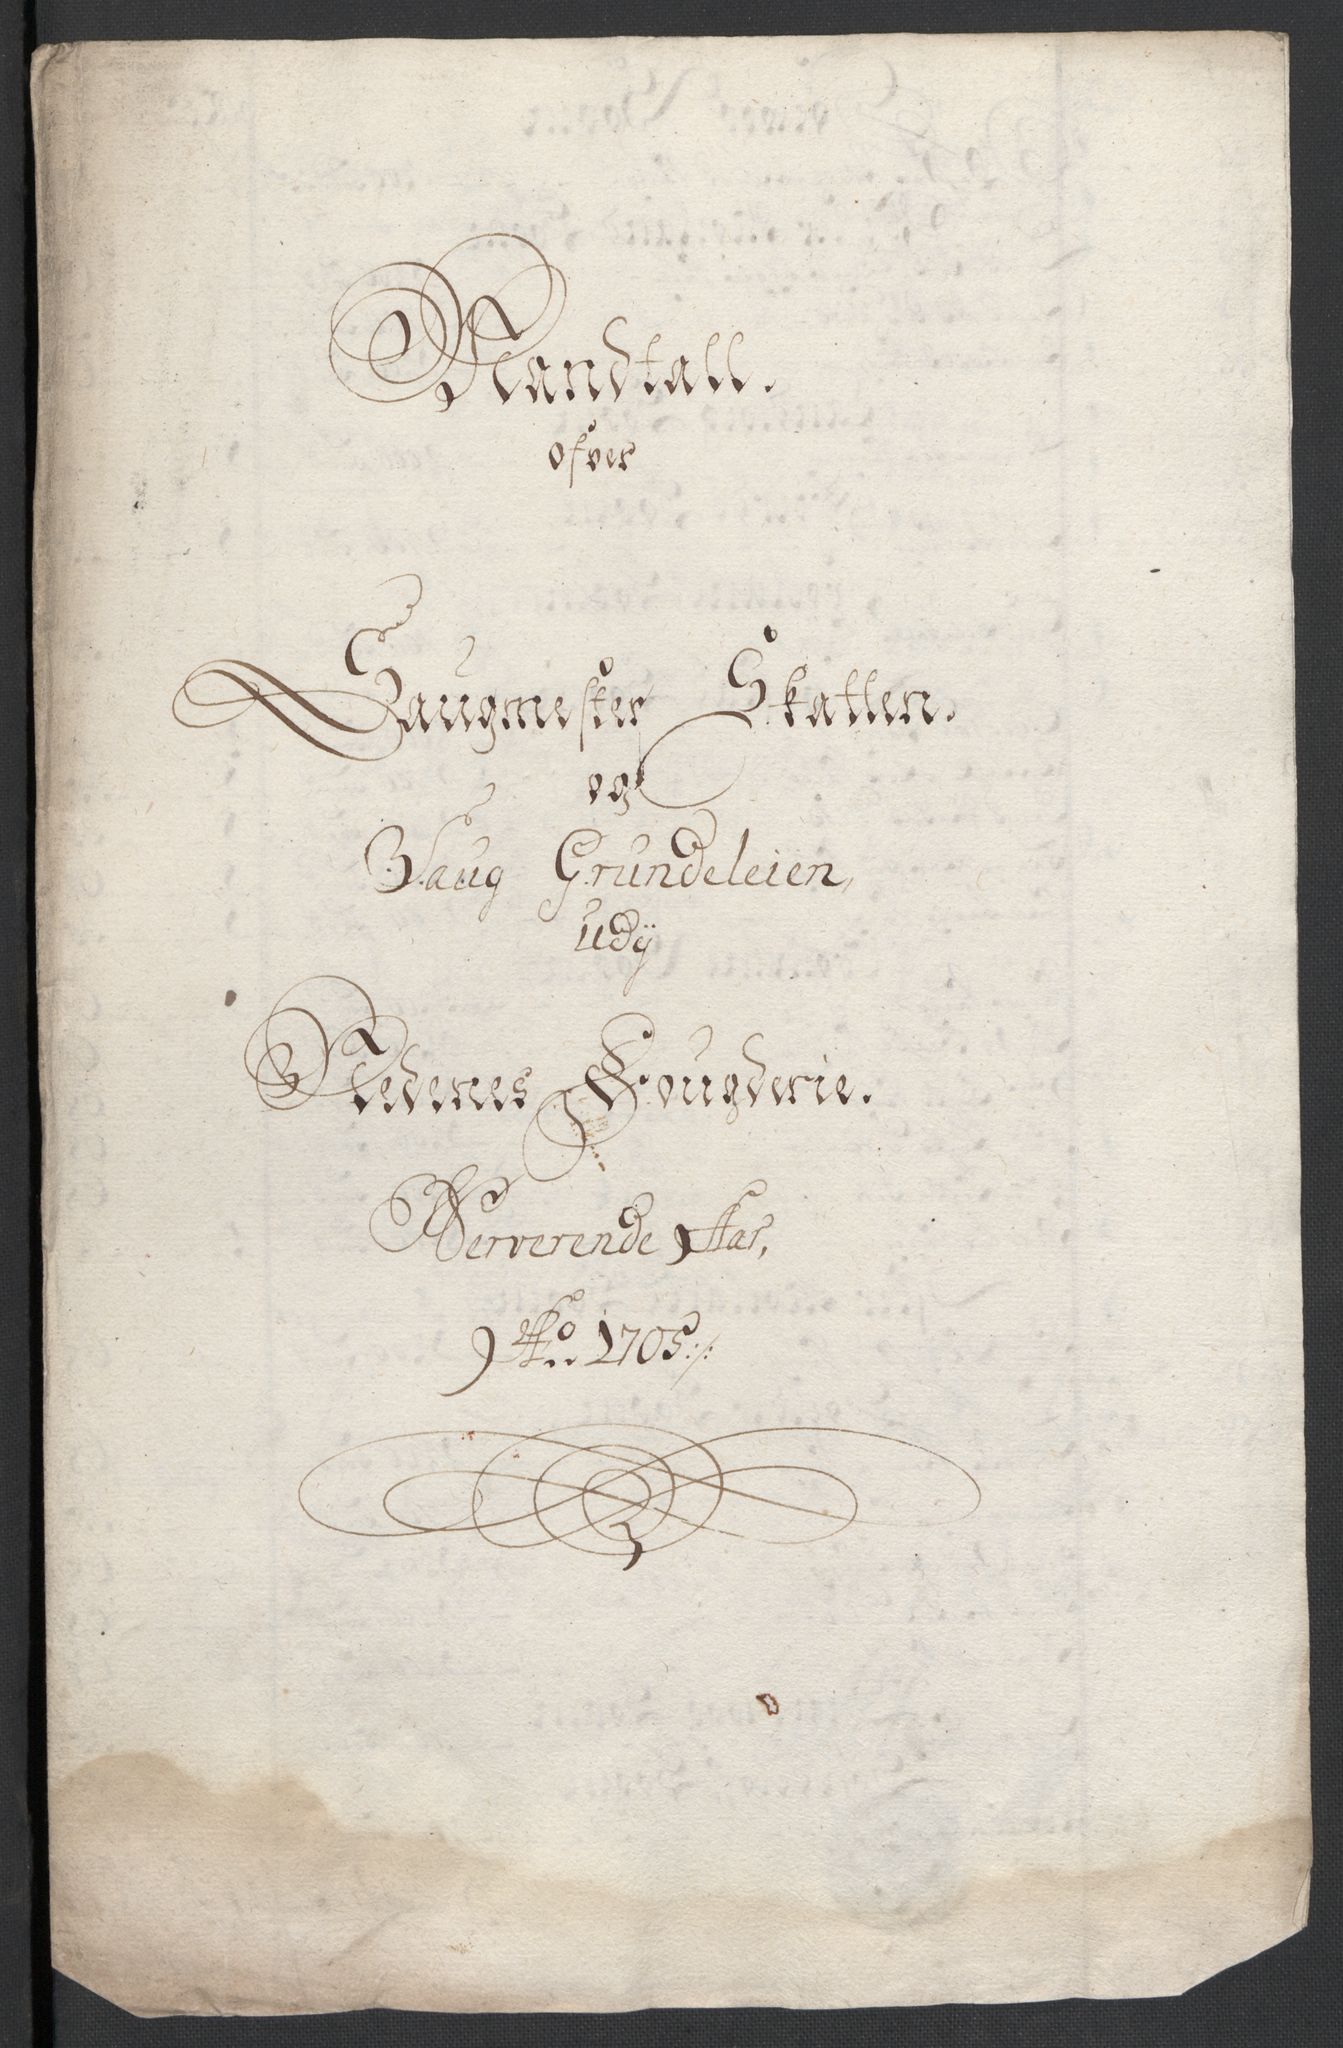 Mandtall.
ofver
Saugmester Skatten.
og
Saug Grundeleien,
udÿ
Nedenes Fougderie.
Nerverende Aar,
Ao. 1705:/: